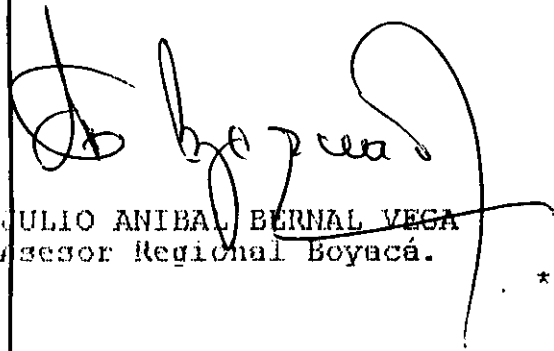 JULIO ANIBAL BERNAL VEGA
Asesor Regional Boyacá.
*